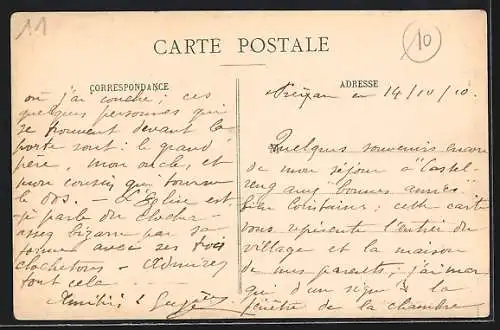 11
10
CARTE POSTALE
CORRESPONDANCE
ADRESSE
Preixan en 14/10/10.
Quelques souvenirs encore
de mon séjour à "Castel-
reng aux "bonnes années"
bien lointaines; cette carte
vous représente l'entrée du
village et la maison
de mes parents; j'ai marqué
qui d'un la
fenêtre de la chambre
où j'ai couché; ces
quelques personnes qui
se trouvent devant la
porte sont: le grand
père, mon oncle, et
mon cousin qui tourne
le dos. - L'Eglise est
parle du clocher
assez bizarre par sa
forme avec ses trois
clochetons - Admirez
tout cela
Amitiés